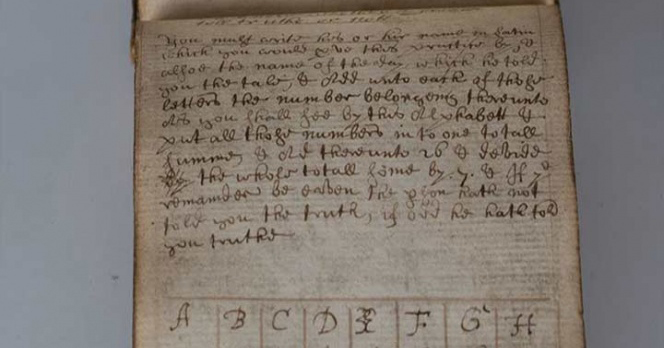 truthe or not
You must write his or her name in Latin
which you would prove this practice by, &
alsoe the name of the day which he told
you the tale, & Add unto each of those
letters the number belonging thereunto
As you shall see by this Alphabett &
put all those numbers in to one totall
summe, & Ad thereunto 26 & devide
the whole totall some by .7. & If ye
remainder be eaven the pson hath not
told you the truth, if odd he hath told
you truthe
A B C D E F G H